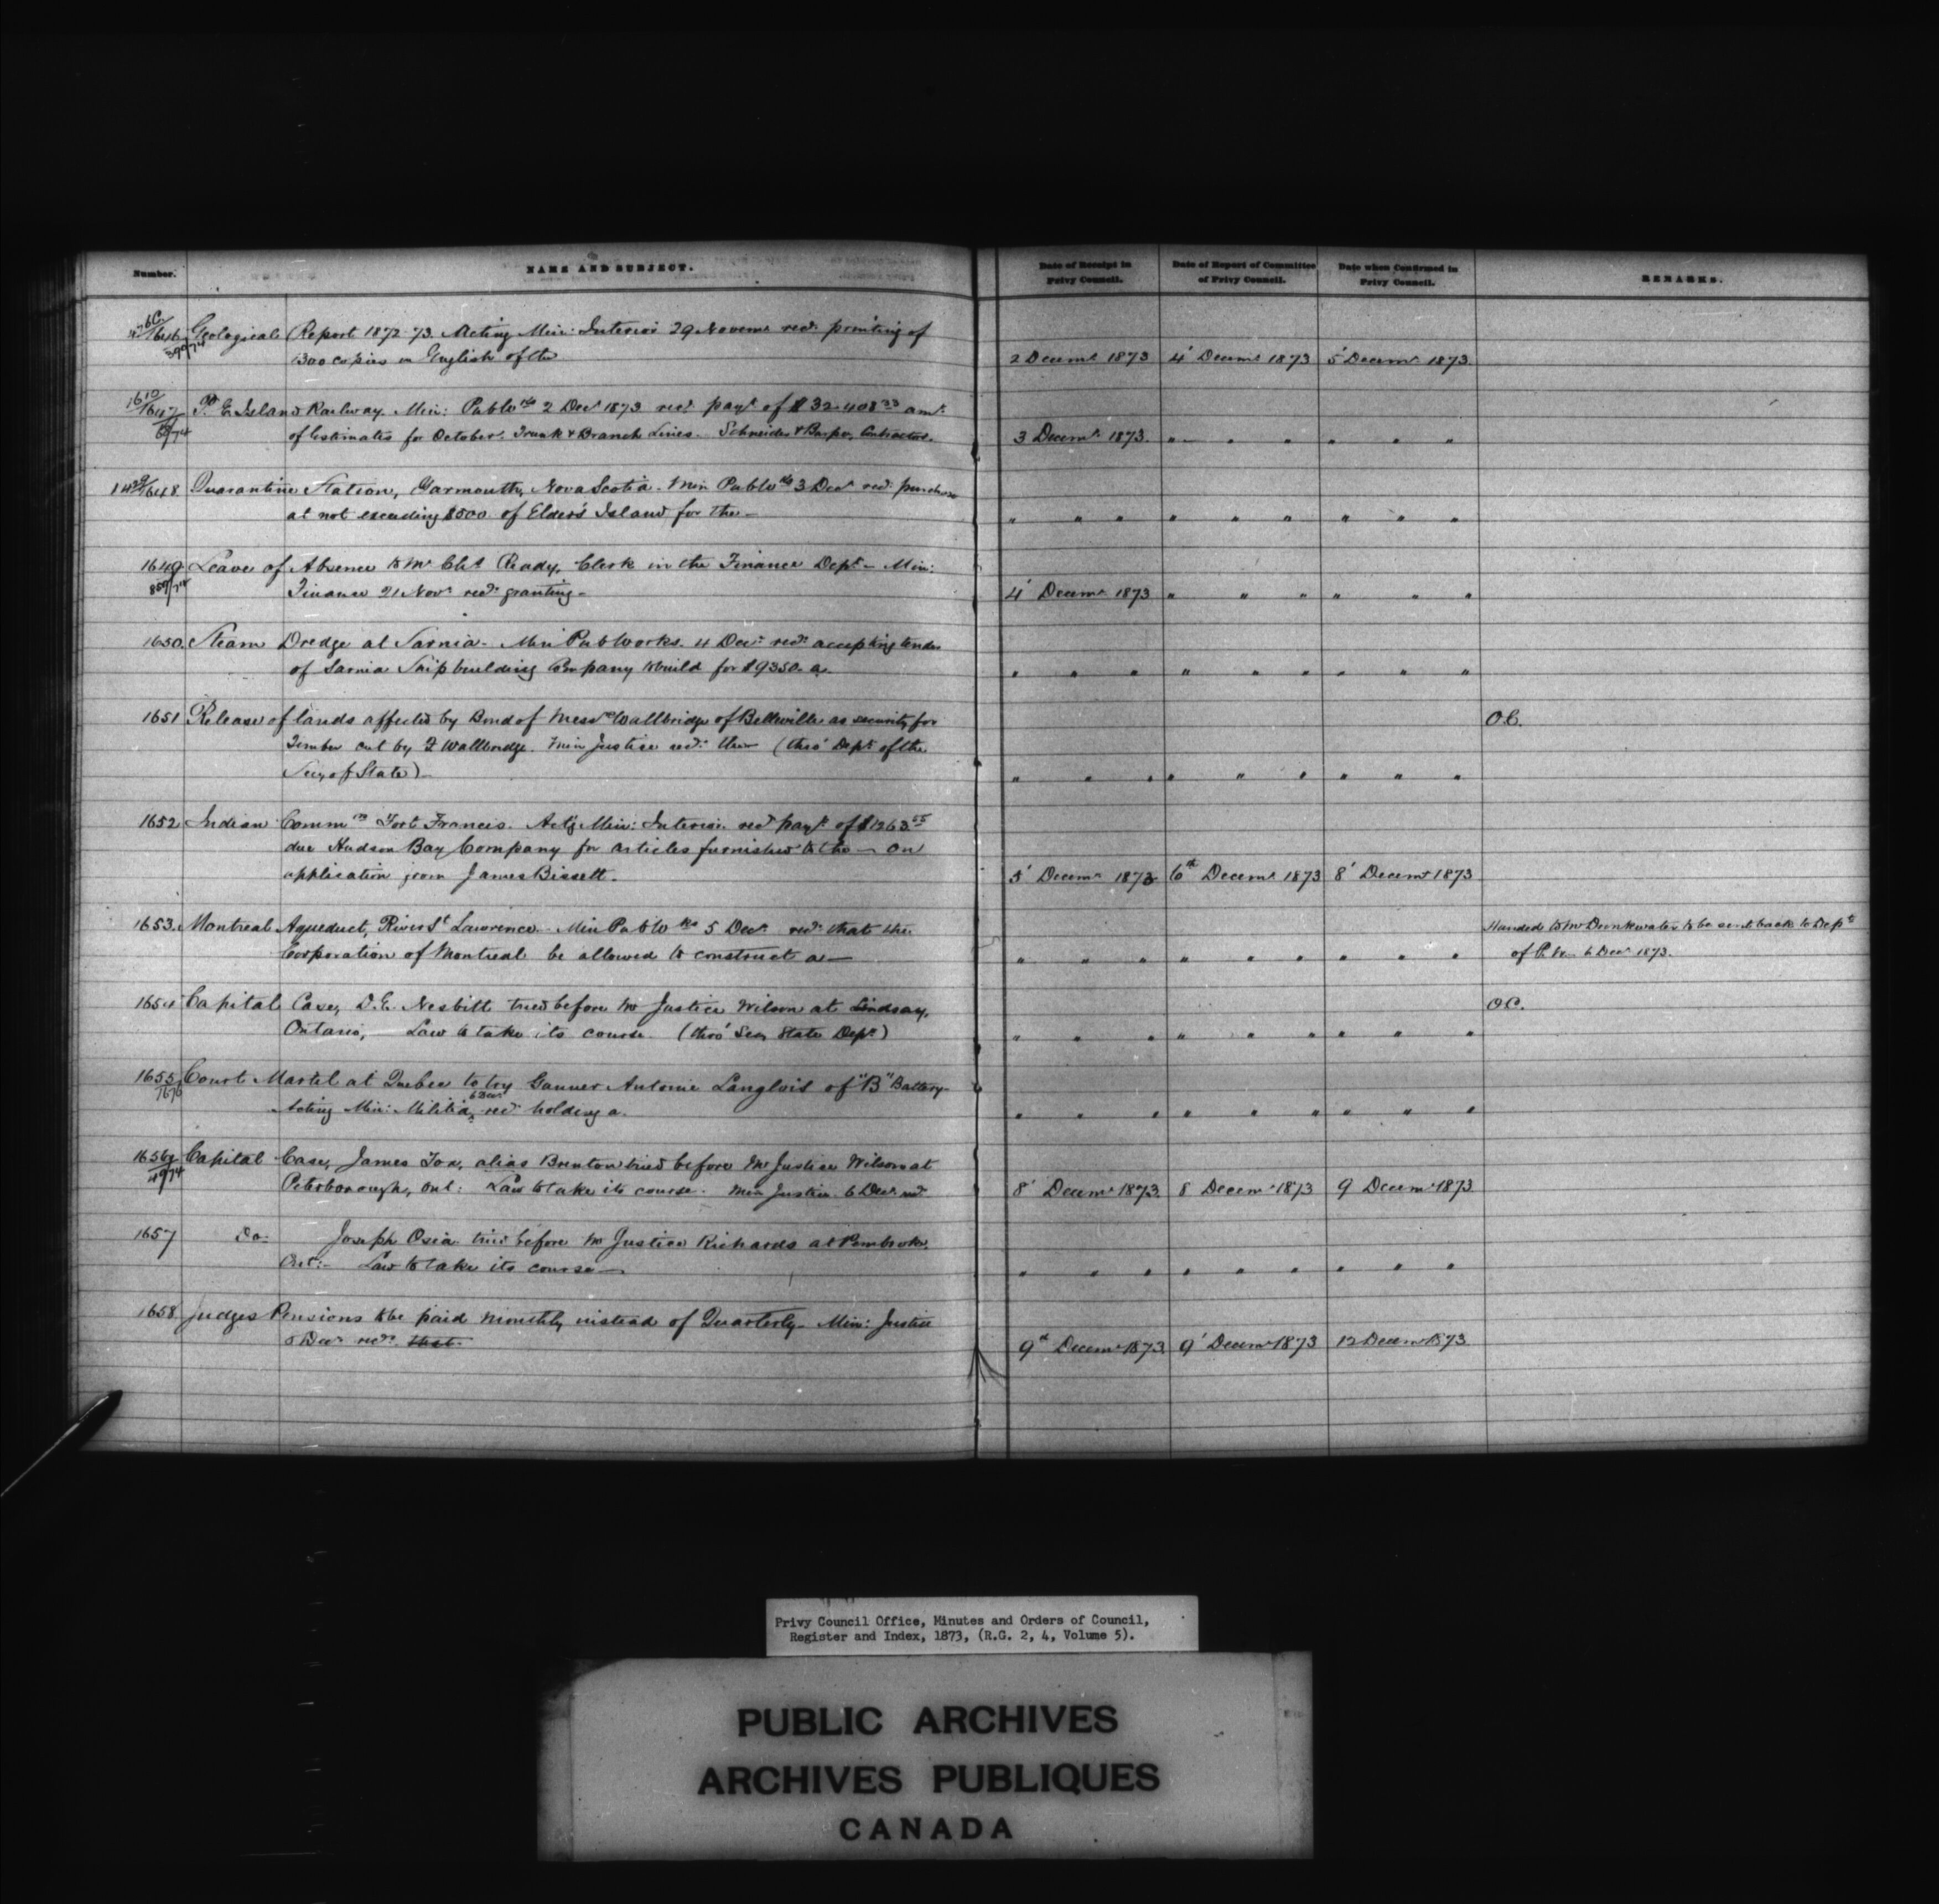 Number. NAME AND SUBJECT. Date of Receipt in Privy Council. Date of Report of Committee of Privy Council. Date when Confirmed in Privy Council. REMARKS.
1646 Geological Report 1872-73. Acting Min: Interior 29 Novemr recd printing of
1300 copies in English of the 2 Decemr 1873 4' Decemr 1873 5' Decemr 1873.
1610
1647 P. E. Island Railway. Min: Pub Wks 2 Decr 1873 recd payt of $32.408 33 amt
of Estimates for October. Trunk & Branch Lines. Schreiber & Contractors. 3 Decemr 1873. " " " " " "
1648 Quarantine Station, Yarmouth, Nova Scotia. Min Pub Wks 3 Decr recd purchase
at not exceeding $500 of Elder's Island for the — " " " " " " " " "
1649 Leave of Absence to Mr Chs Ready, Clerk in the Finance Dept — Min:
Finance 21 Novr recd granting — 4' Decemr 1873 " " " " " "
1650. Steam Dredge at Sarnia — Min Pub Works. 4 Decr recd accepting tender
of Sarnia Ship building Company to build for $9350. a. " " " " " " " " "
1651 Release of lands affected by Bond of Messrs Wallbridge of Belleville as security for O.C.
Timber cut by F Wallbridge. Min Justice recd the — (thro' Dept of the
Secy of State) — " " " " " " " " "
1652 Indian Commrs Fort Francis. Act'g Min: Interior. recd payt of $1263.55
due Hudson Bay Company for articles furnished to the — On
application from James Bissett. 5' Decemr 1873 6th Decemr 1873 8' Decemr 1873
1653. Montreal Aqueduct, River St Lawrence — Min Pub Wks 5 Decr recd that the Handed to Mr Drinkwater to be sent back to Dept
Corporation of Montreal be allowed to construct a — " " " " " " " " " of P. W. 6 Decr 1873.
1654 Capital Case, D. E. Nesbitt tried before Mr Justice Wilson at Lindsay, O.C.
Ontario, Law to take its course. (thro' Secy State Dept) " " " " " " " " "
1655 Court Martel at Quebec to try Gunner Antonie Langlois of "B" Battery —
1676 Acting Min: Militia 6 Decr recd holding a. " " " " " " " " "
1656 Capital Case, James Fox, alias Brunton tried before Mr Justice Wilson at
Peterborough, Ont: Law to take its course. Min Justice 6 Decr recd 8' Decemr 1873. 8 Decemr 1873 9 Decemr 1873
1657 Do: Joseph Osia tried before Mr Justice Richards at Pembroke,
Ont: — Law to take its course — " " " " " " " " "
1658 Judges Pensions to be paid monthly instead of Quarterly — Min: Justice
8 Decr recd that 9th Decemr 1873 9' Decemr 1873 12 Decemr 1873
Privy Council Office, Minutes and Orders of Council,
Register and Index, 1873, (R.G. 2, 4, Volume 5).
PUBLIC ARCHIVES
ARCHIVES PUBLIQUES
CANADA